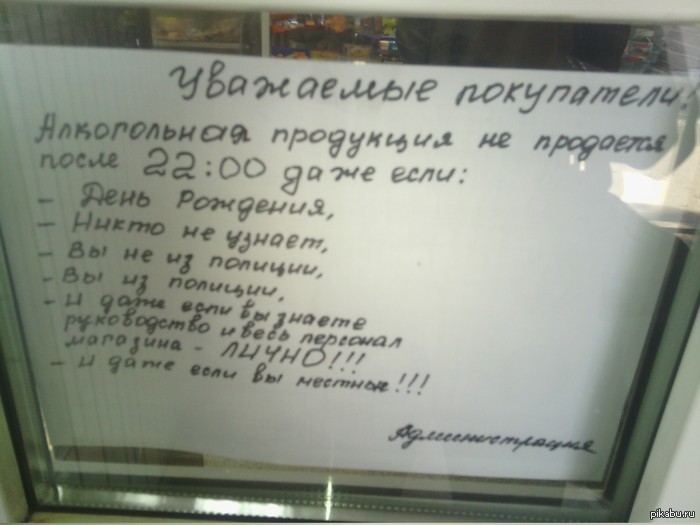 Уважаемые покупатели!
Алкогольная продукция не продается
после 22:00 даже если:
- День Рождения,
- Никто не узнает,
- Вы не из полиции,
- Вы из полиции,
- И даже если вы знаете
руководство и весь персонал
магазина - ЛИЧНО!!!
- И даже если вы местные!!!
Администрация
pikabu.ru